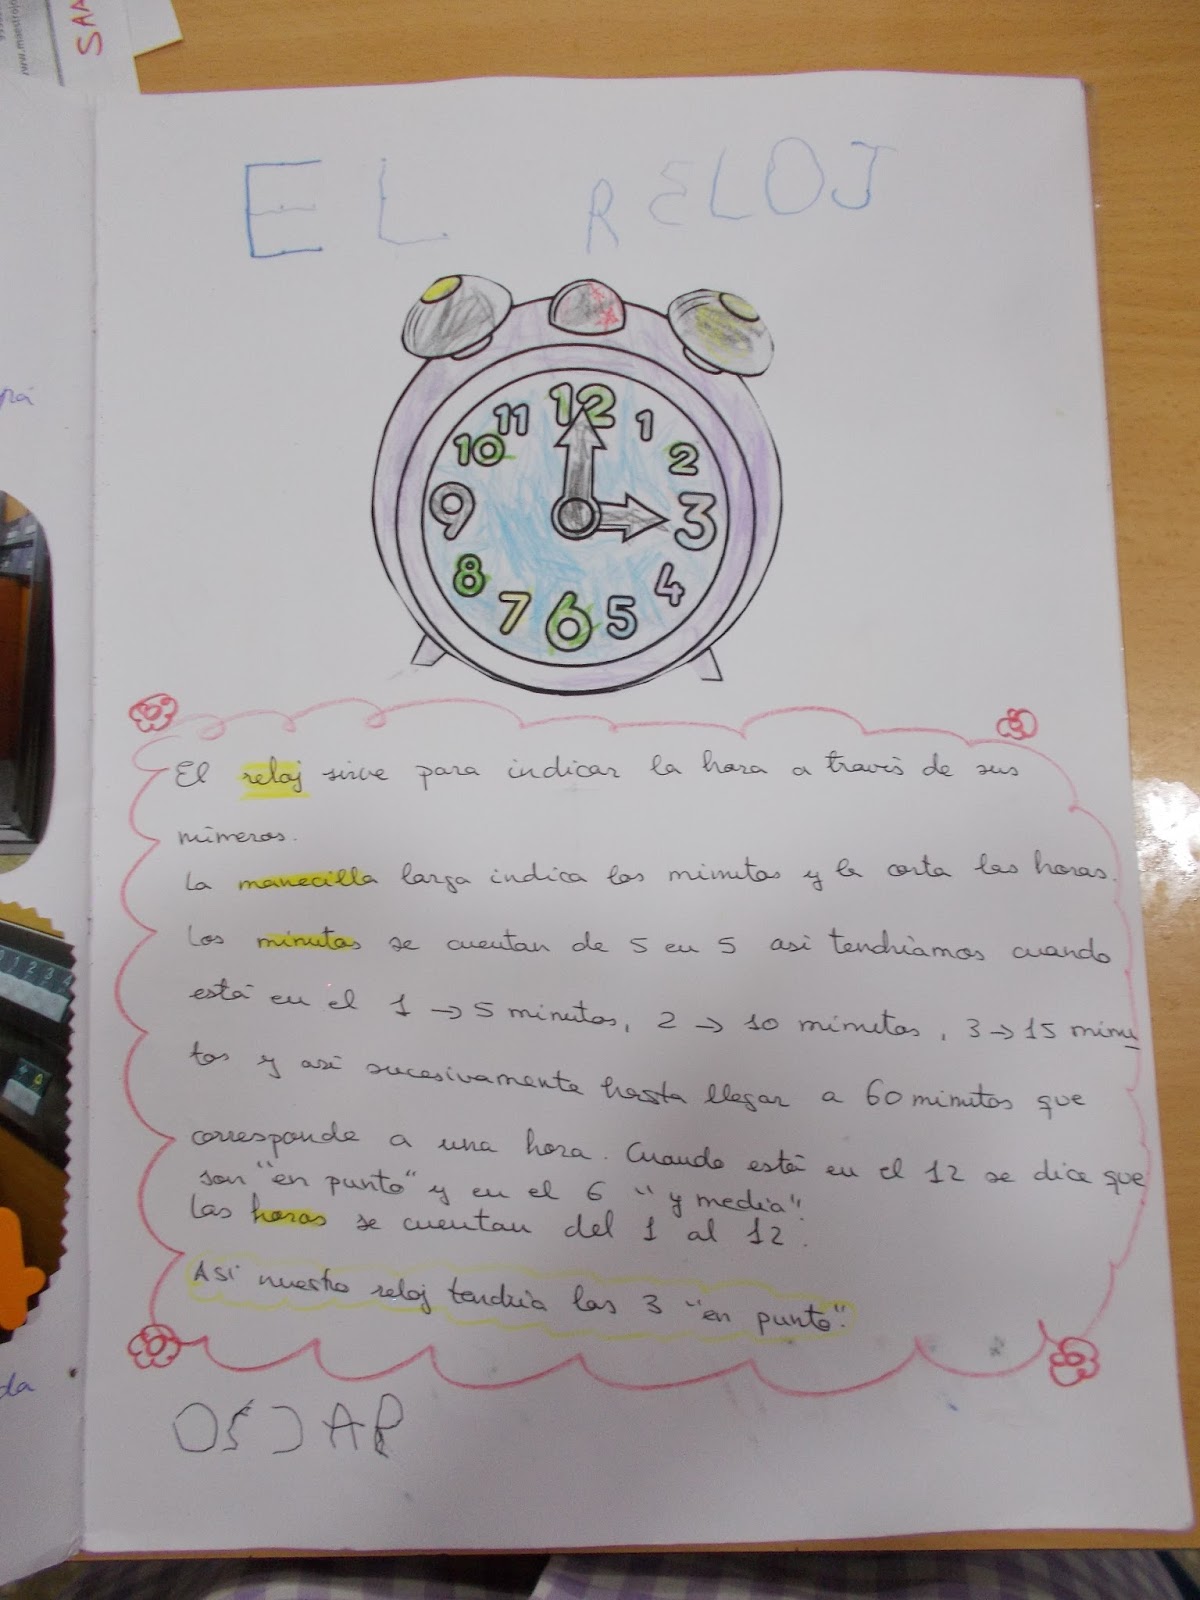 SAA
www.maestrojo
EL RELOJ
12
11
1
10
2
9
3
8
4
7
5
6
El reloj sirve para indicar la hora a través de sus
números.
La manecilla larga indica los minutos y la corta las horas.
Los minutos se cuentan de 5 en 5 así tendríamos cuando
está en el 1 → 5 minutos, 2 → 10 minutos, 3 → 15 minu
tos y así sucesivamente hasta llegar a 60 minutos que
corresponde a una hora. Cuando está en el 12 se dice que
son "en punto" y en el 6 "y media".
Las horas se cuentan del 1 al 12.
Así nuestro reloj tendría las 3 "en punto".
OSCAR
0 1 2 3 4
da